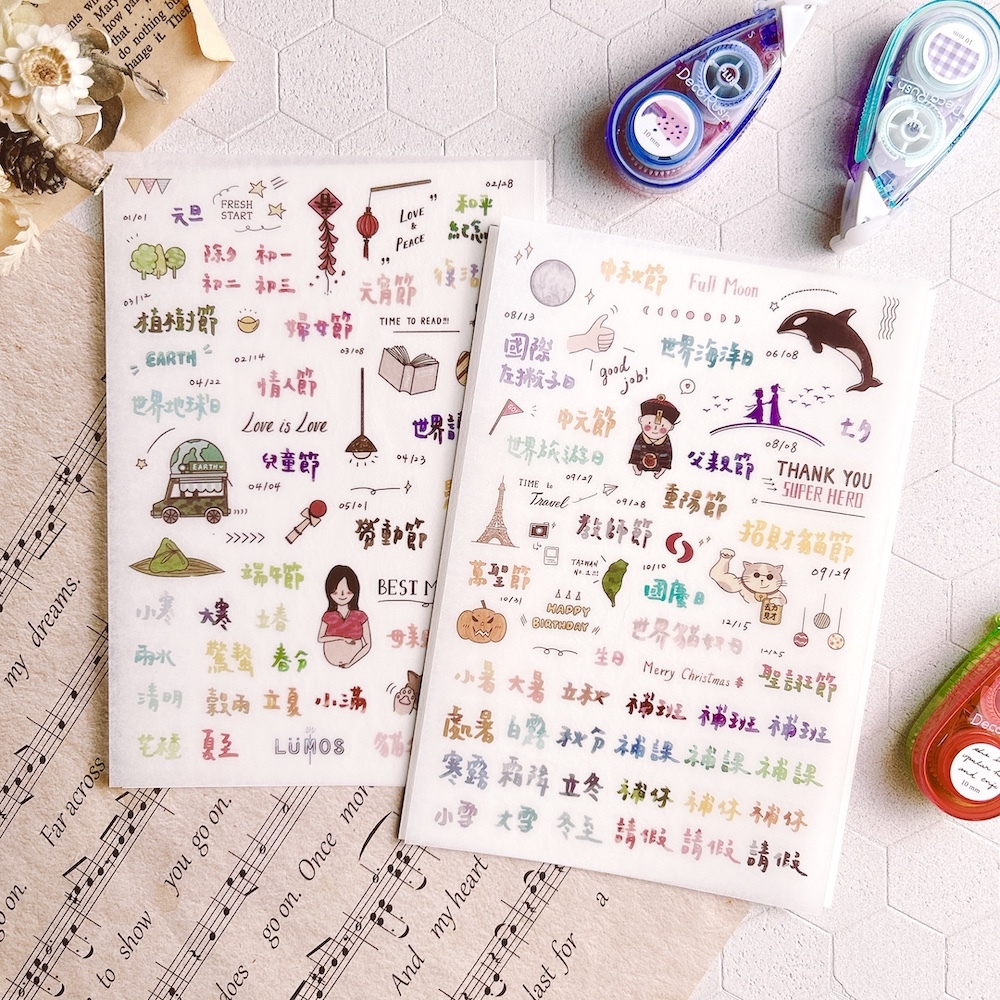 how pa
do nothing bu
change it. There
01/01
元旦
FRESH
START
LOVE
&
PEACE
02/28
和平
紀念
除夕 初一
初二 初三
元宵節
復活
03/12
植樹節
婦女節
03/08
TIME TO READ!!!
EARTH
04/22
世界地球日
02/14
情人節
Love is Love
世界
04/23
兒童節
04/04
EARTH
05/01
勞動節
端午節
BEST M
母親
小寒 大寒 立春
雨水 驚蟄 春分
清明 穀雨 立夏 小滿
芒種 夏至 LUMOS
中秋節 Full Moon
08/13
國際
左撇子日
good
job!
世界海洋日 06/08
中元節
世界旅遊日
09/27
父親節
08/08
七夕
THANK YOU
SUPER HERO
TIME to
Travel
09/28
教師節
重陽節
招財貓節
09/29
萬聖節
10/31
TAIWAN
NO.1!!!
10/10
國慶日
HAPPY
BIRTHDAY
生日
世界貓奴日
12/15
招財
Merry Christmas
12/25
聖誕節
小暑 大暑 立秋 補班 補班 補班
處暑 白露 秋分 補課 補課 補課
寒露 霜降 立冬 補休 補休 補休
小雪 大雪 冬至 請假 請假 請假
DecoRush
10 mm
DecoRush
10 mm
Deco
10 mm
my dreams.
Far across
you go on.
go on.
to show
does -
go on. Once
mor
And my heart
last for
a